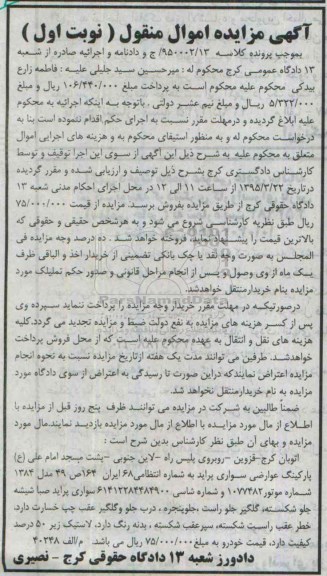 آگهی مزایده اموال منقول ( نوبت اول )
بموجب پرونده کلاسه ۹۵۰۰۰۲/۱۳/ ج و دادنامه و اجرائیه صادره از شعبه
۱۳ دادگاه عمومی کرج محکوم له : میرحسین سید جلیلی علیه : فاطمه زارع
بیدکی محکوم علیه محکوم است به پرداخت مبلغ ۱۰۶/۴۴۰/۰۰۰ ریال و مبلغ
۵/۳۲۲/۰۰۰ ریال و مبلغ نیم عشر دولتی . باتوجه به اینکه اجرائیه به محکوم
علیه ابلاغ گردیده و درمهلت مقرر نسبت به اجرای حکم اقدام ننموده است بنا به
درخواست محکوم له و به منظور استیفای محکوم به و هزینه های اجرایی اموال
متعلق به محکوم علیه به شرح ذیل این آگهی از سوی این اجرا توقیف و توسط
کارشناس دادگستری کرج بشرح ذیل توصیف و ارزیابی شده و مقرر گردیده
درتاریخ ۱۳۹۵/۳/۲۲ از ساعت ۱۱ الی ۱۲ در محل اجرای احکام مدنی شعبه ۱۳
دادگاه حقوقی کرج از طریق مزایده بفروش برسد. مزایده از قیمت ۷۵/۰۰۰/۰۰۰
ریال طبق نظریه کارشناسی شروع می شود و به هرشخص حقیقی و حقوقی که
بالاترین قیمت را پیشنهاد نماید فروخته خواهد شد . ده درصد وجه مزایده فی
المجلس به صورت وجه نقد یا چک بانکی تضمینی از خریدار اخذ و الباقی ظرف
یک ماه از وی وصول و پس از انجام مراحل قانونی و صدور حکم تملیک مورد
مزایده بنام خریدارمنتقل خواهدشد.
درصورتیکه در مهلت مقرر خریدار وجه مزایده را پرداخت ننماید سپرده وی
پس از کسر هزینه های مزایده به نفع دولت ضبط و مزایده تجدید می گردد.کلیه
هزینه های نقل و انتقال به عهده محکوم علیه است که از محل فروش پرداخت
خواهدشد. طرفین می توانند مدت یک هفته ازتاریخ مزایده نسبت به نحوه انجام
مزایده اعتراض نمایندکه دراین صورت تا رسیدگی به اعتراض از سوی دادگاه مورد
مزایده به نام خریدارمنتقل نخواهد شد.
ضمناً طالبین به شرکت در مزایده می توانند ظرف پنج روز قبل از مزایده با
اطلاع از مال مورد مزایده با اطلاع از مال مورد مزایده بازدید نمایند.مال مورد
مزایده و بهای آن طبق نظر کارشناس بدین شرح است :
اتوبان کرج-قزوین -روبروی پلیس راه -لاین جنوبی -پشت مسجد امام علی (ع)
پارکینگ عوارضی سواری پراید به شماره انتظامی۶۸ ایران ۱۶۴ص ۴۹ مدل ۱۳۸۴
شماره موتور۱۰۷۷۴۸۲ و شماره شاسی ۶۱۴۱۲۲۸۴۴۸۴۹۰۰ سواری پراید صبا شیشه
جلو شکسته، گلگیر جلو راست ،جلوپنجره ، درب جلو وگلگیر عقب چپ خسارت دارد،
خطر عقب راست شکسته، سپرعقب شکسته ، بدنه رنگ دارد، لاستیک زیر ۵۰ درصد
کیفیت دارد، قیمت خودرو به مبلغ۷۵/۰۰۰/۰۰۰ ریال می باشد. م/الف ۴۰۲۴۸
دادورز شعبه ۱۳ دادگاه حقوقی کرج - نصیری